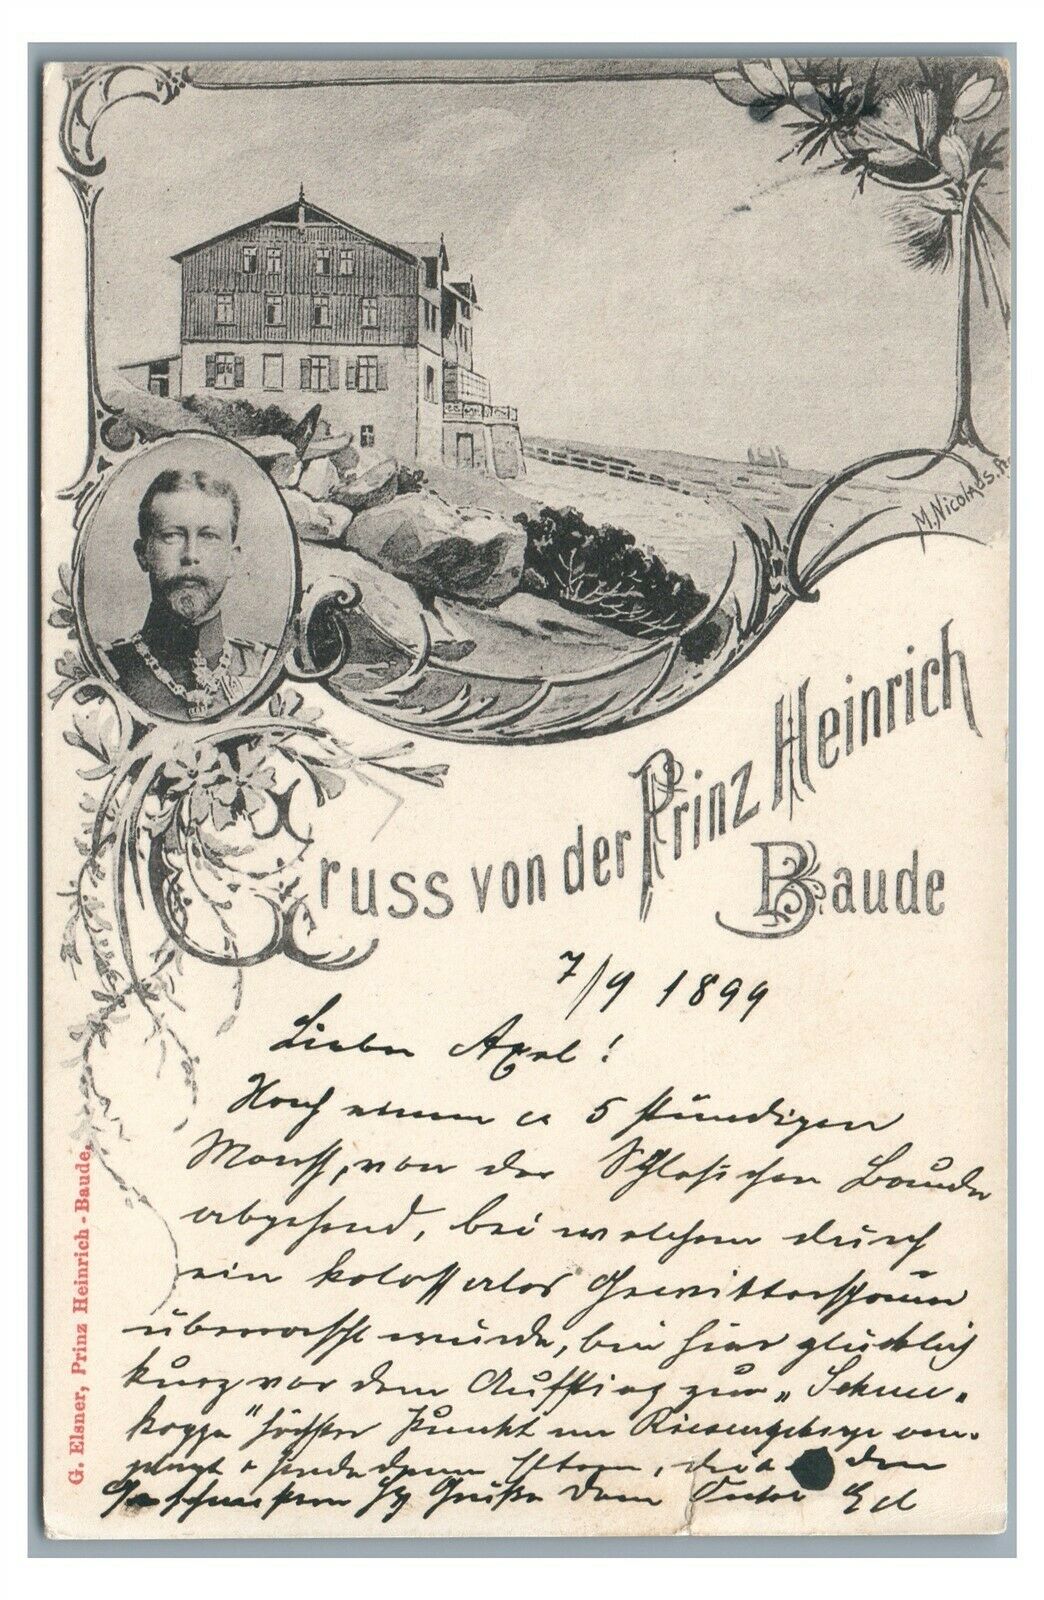 M. Nicolaus.
Gruss von der Prinz Heinrich
Baude
7/9 1899
Lieber Axel!
Nach einem ca 5 stündigen
Marsch, von der Schlesischen Baude
abgehend, bei welchem durch
ein kolossales Gewitterschauer
überrascht wurde, bin hier glücklich
kurz vor dem Aufstieg zur „Schnee-
koppe" höchster Punkt im Riesengebirge
den
Grüße Dein
G. Elsner, Prinz Heinrich-Baude.